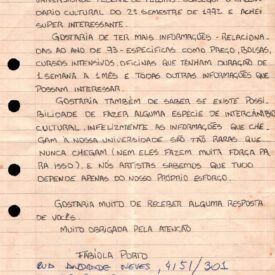 UNIVERSIDADE FEDERAL DE PELOTAS.
DÁRIO CULTURAL DO 2º SEMESTRE DE 1992 E ACHEI
SUPER INTERESSANTE.
GOSTARIA DE TER MAIS INFORMAÇÕES - RELACIONA-
DAS AO ANO DE 93 - ESPECÍFICAS COMO PREÇO, BOLSAS,
CURSOS INTENSIVOS, OFICINAS QUE TENHAM DURAÇÃO DE
1 SEMANA A 1 MÊS E TODAS OUTRAS INFORMAÇÕES QUE
POSSAM INTERESSAR.
GOSTARIA TAMBÉM DE SABER SE EXISTE POSSI-
BILIDADE DE FAZER ALGUMA ESPÉCIE DE INTERCÂMBIO
CULTURAL, INFELIZMENTE AS INFORMAÇÕES QUE CHE-
GAM A NOSSA UNIVERSIDADE SÃO TÃO RARAS QUE
NUNCA CHEGAM (NEM ELES FAZEM MUITA FORÇA PA-
RA ISSO), E NÓS ARTISTAS SABEMOS QUE TUDO
DEPENDE APENAS DO NOSSO PRÓPRIO ESFORÇO.
GOSTARIA MUITO DE RECEBER ALGUMA RESPOSTA
DE VOCÊS.
MUITO OBRIGADA PELA ATENÇÃO
FABÍOLA PORTO
RUA ANDRADE NEVES, 4151/301